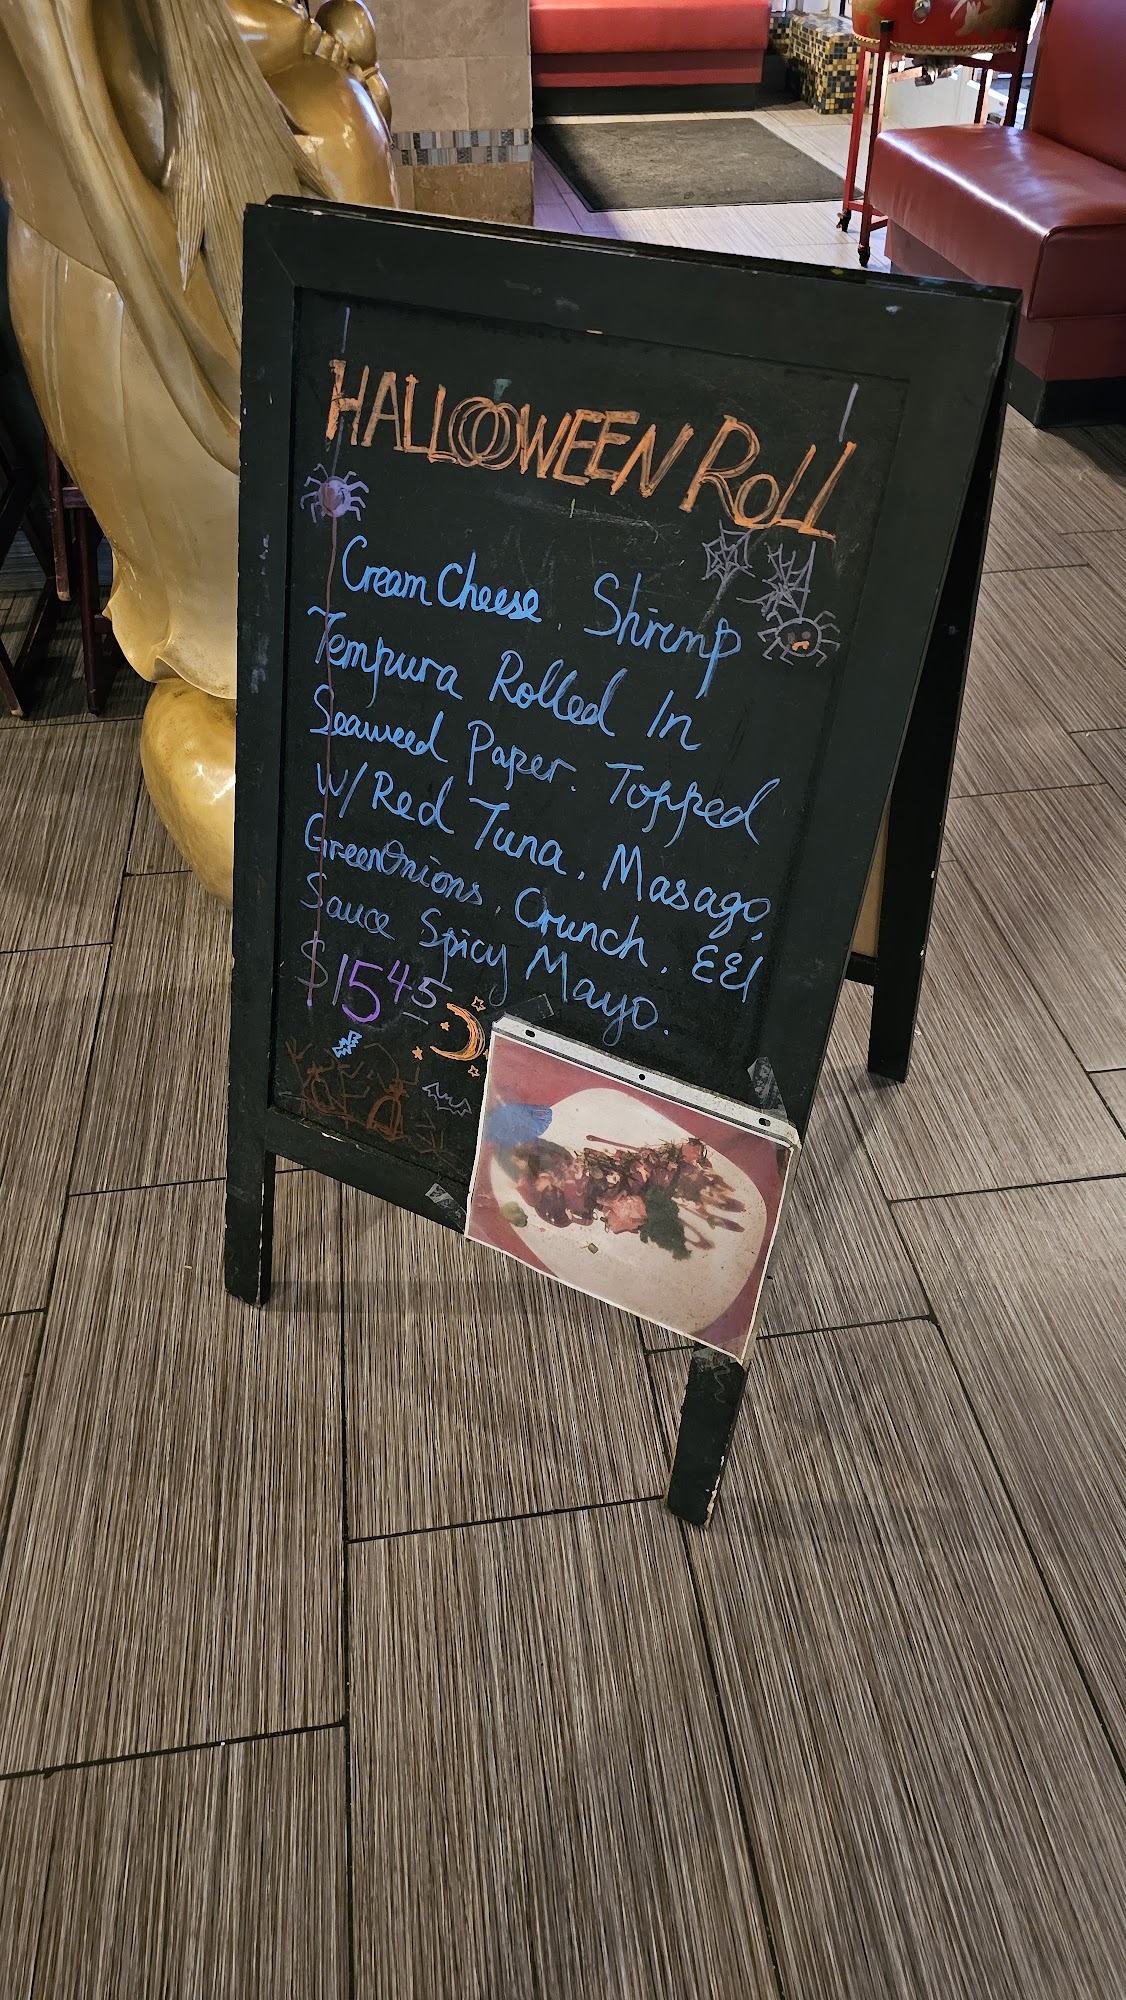 HALLOOWEEN ROLL
Cream Cheese, Shrimp
Tempura Rolled In
Seaweed Paper. Topped
W/ Red Tuna, Masago,
Green Onions, Crunch, EEl
Sauce Spicy Mayo.
$15 45